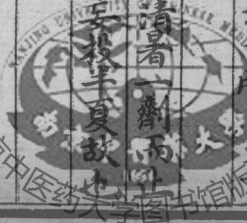 清暑一劑而
妄投半夏故也
京中医药大学图书馆版